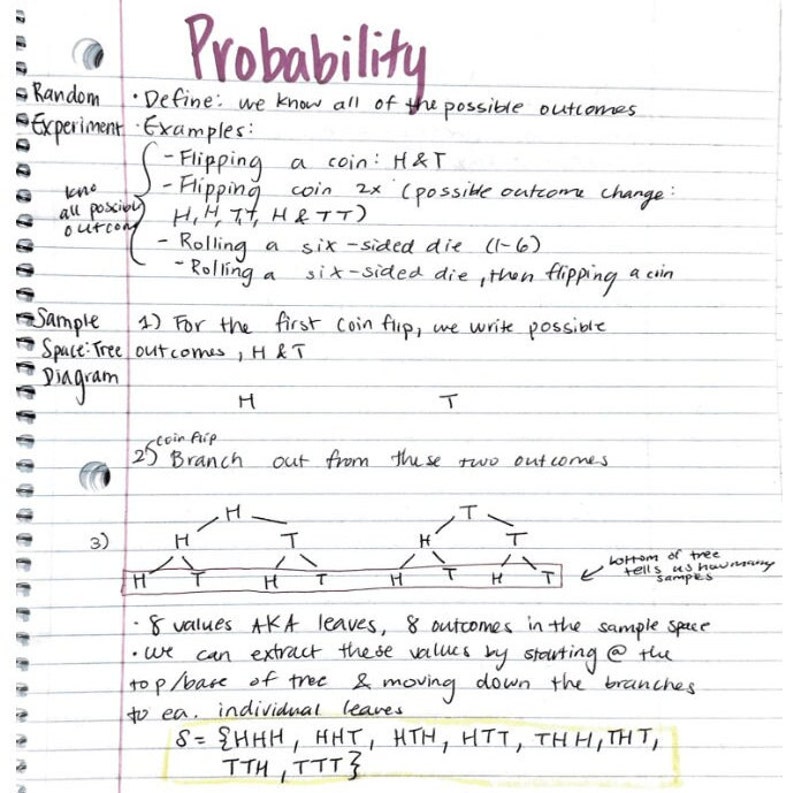 Probability
Random
Experiment
• Define: we know all of the possible outcomes
• Examples:
- Flipping a coin: H & T
- Flipping coin 2x (possible outcome change:
H, H, T, T, H & TT)
- Rolling a six-sided die (1-6)
- Rolling a six-sided die, then flipping a coin
all possible
outcom
Sample
Space: Tree
Diagram
1) For the first coin flip, we write possible
outcomes, H & T
H T
coin flip
2) Branch out from these two outcomes
3)
H T
H T H T
H T H T H T H T
bottom of tree
tells us how many
samples
• 8 values AKA leaves, 8 outcomes in the sample space
• we can extract these values by starting @ the
top/base of tree & moving down the branches
to ea. individual leaves
S = {HHH, HHT, HTH, HTT, THH, THT,
TTH, TTT}